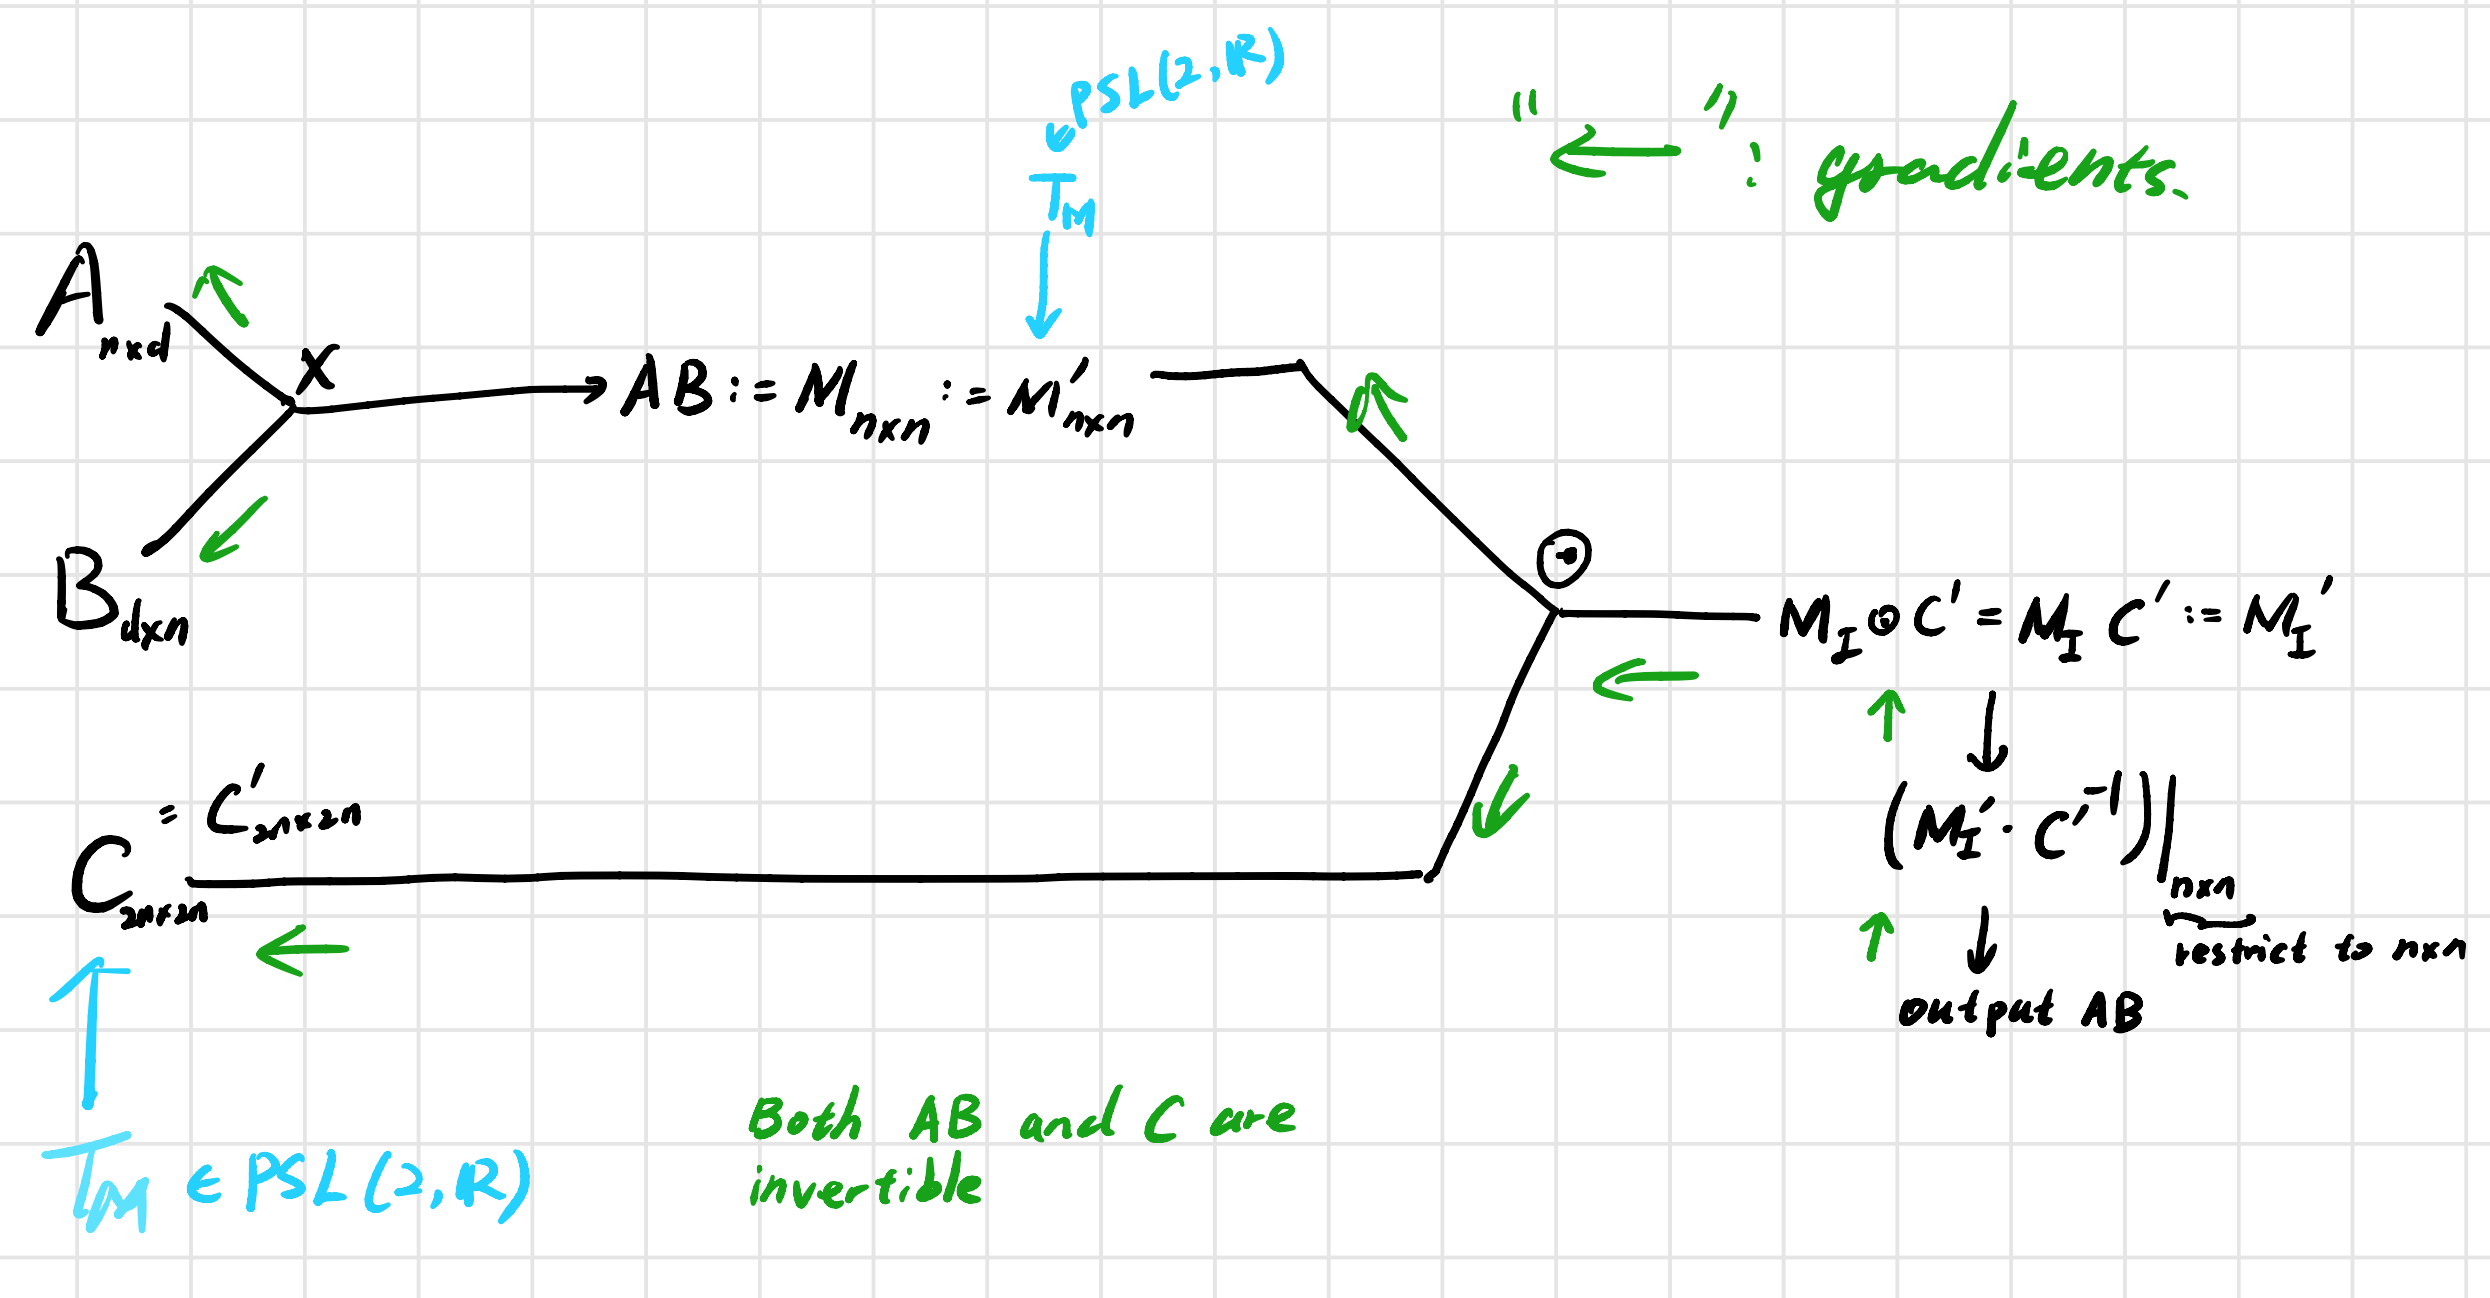 PSL(2,ℝ)
T_M
"←" : gradients.
A_{n×d}
×
AB := M_{n×n} := M'_{n×n}
B_{d×n}
⊙
M_I ⊙ C' = M_I C' := M_I'
= C'_{2n×2n}
C_{2n×2n}
(M_I' · C'^{-1})|_{n×n}
restrict to n×n
output AB
T_M ∈ PSL(2,ℝ)
Both AB and C are
invertible